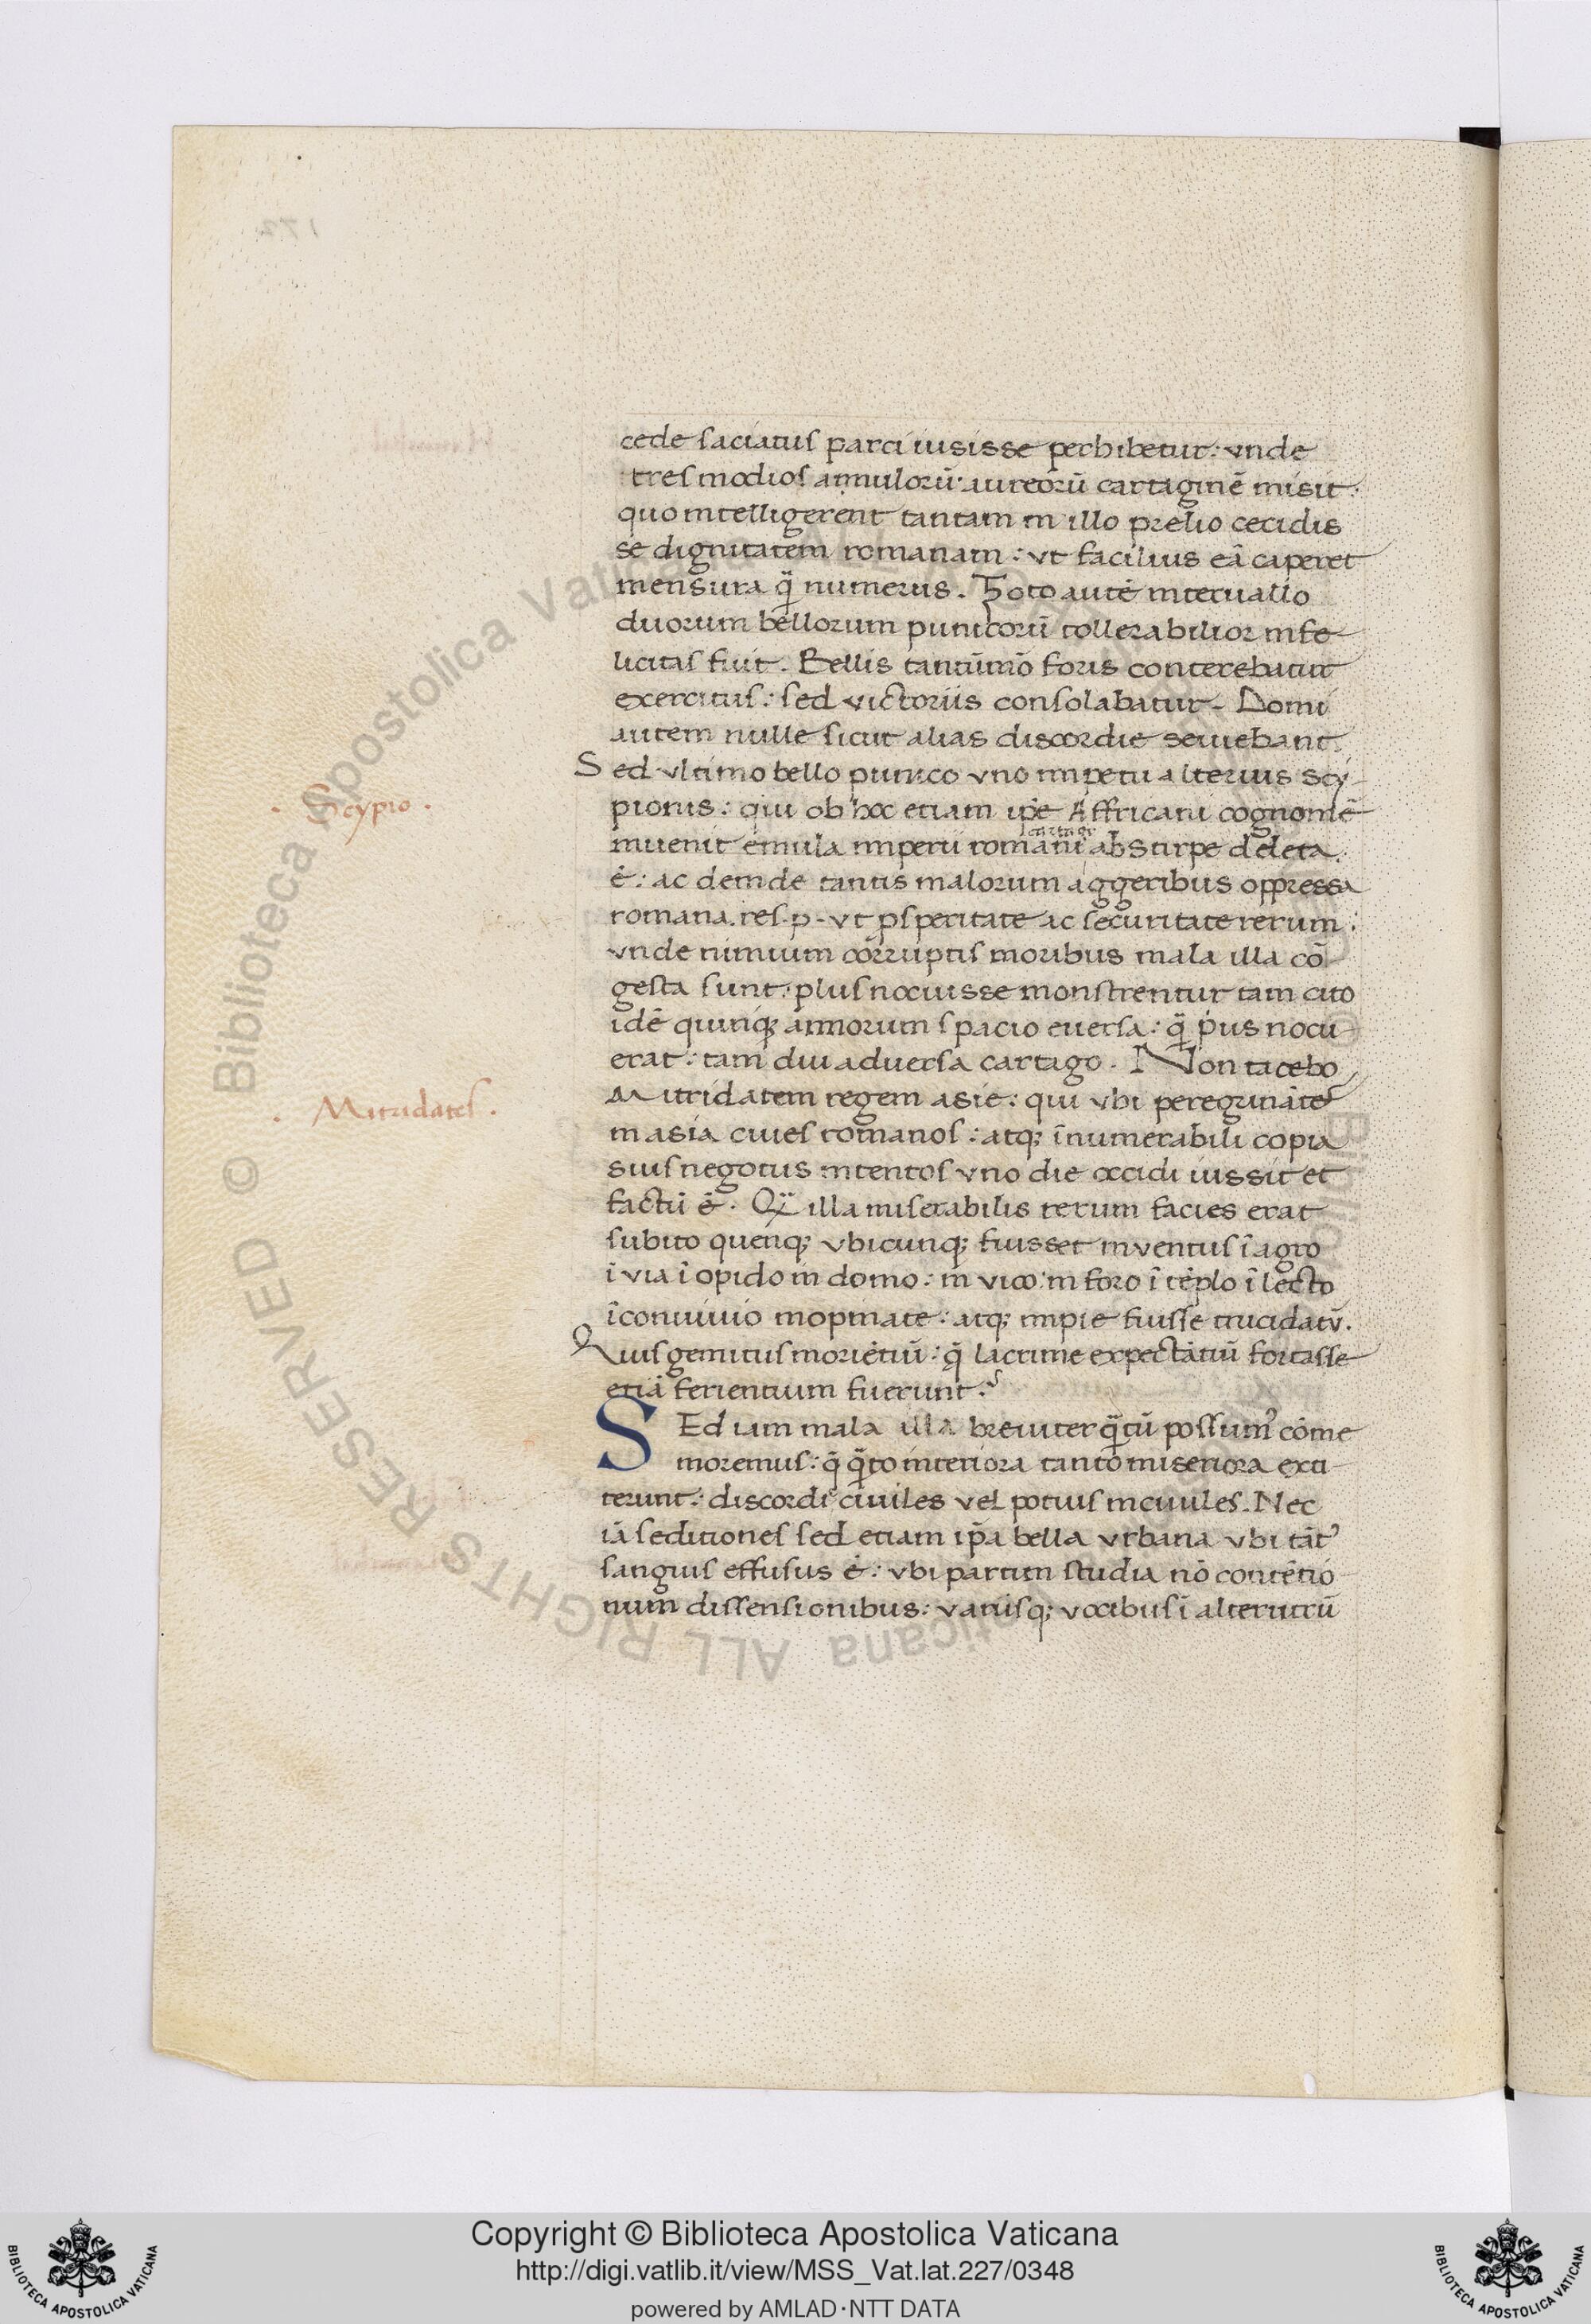 cede saciatus parci iusisse perhibetur: vnde
tres modios annulorū aureorū cartaginē misit
quo intelligerent tantam in illo prelio cecidis
se dignitatem romanam: vt facilius eā caperet
mensura q̄ numerus. Toto autē interuallo
duorum bellorum punicorū tollerabilior infe
licitas fuit. Bellis tantūmō foris conterebatur
exercitus: sed victoriis consolabatur. Domi
autem nulle sicut alias discordie seuiebant.
Sed vltimo bello punico vno impetu alterius Scy
. Scypio .
pionis: qui ob hoc etiam Affricani cognomē
cartago
inuenit emula imperii romani ab stirpe deleta
ē: ac deinde tantis malorum aggeribus oppressa
romana. res. p. vt psperitate ac securitate rerum:
vnde nimium corruptis moribus mala illa cō
gesta sunt: plus nocuisse monstrentur tam cito
idē quinq; annorum spacio euersa: q̄ pus nocu
erat: tam diu aduersa cartago. Non tacebo
. Mitridates .
Mitridatem regem asie: qui vbi peregrinātes
in asia ciues romanos: atq; īnumerabili copia
suis negotiis intentos vno die occidi iussit et
factū ē. Q̄ illa miserabilis rerum facies erat
subito quenq; vbicunq; fuisset inventus ī agro
ī via ī opido in domo: in vico: in foro ī tēplo ī lecto
ī conuiuio inopinate: atq; impie fuisse trucidatū.
Quis gemitus moriētiū: q̄ lacrime expectātiū fortasse
etiā ferientium fuerunt.
SEd iam mala illa breuiter q̄tū possum cōme
moremus: q̄ q̄to interiora tanto miseriora exti
terunt: discordie ciuiles vel potius inciuiles. Nec
iā seditiones sed etiam ipa bella vrbana vbi tāt
sanguis effusus ē: vbi partium studia nō contētio
num dissensionibus: variisq; vocibus ī alterutrū
Copyright © Biblioteca Apostolica Vaticana
http://digi.vatlib.it/view/MSS_Vat.lat.227/0348
powered by AMLAD·NTT DATA
BIBLIOTECA APOSTOLICA VATICANA
BIBLIOTECA APOSTOLICA VATICANA